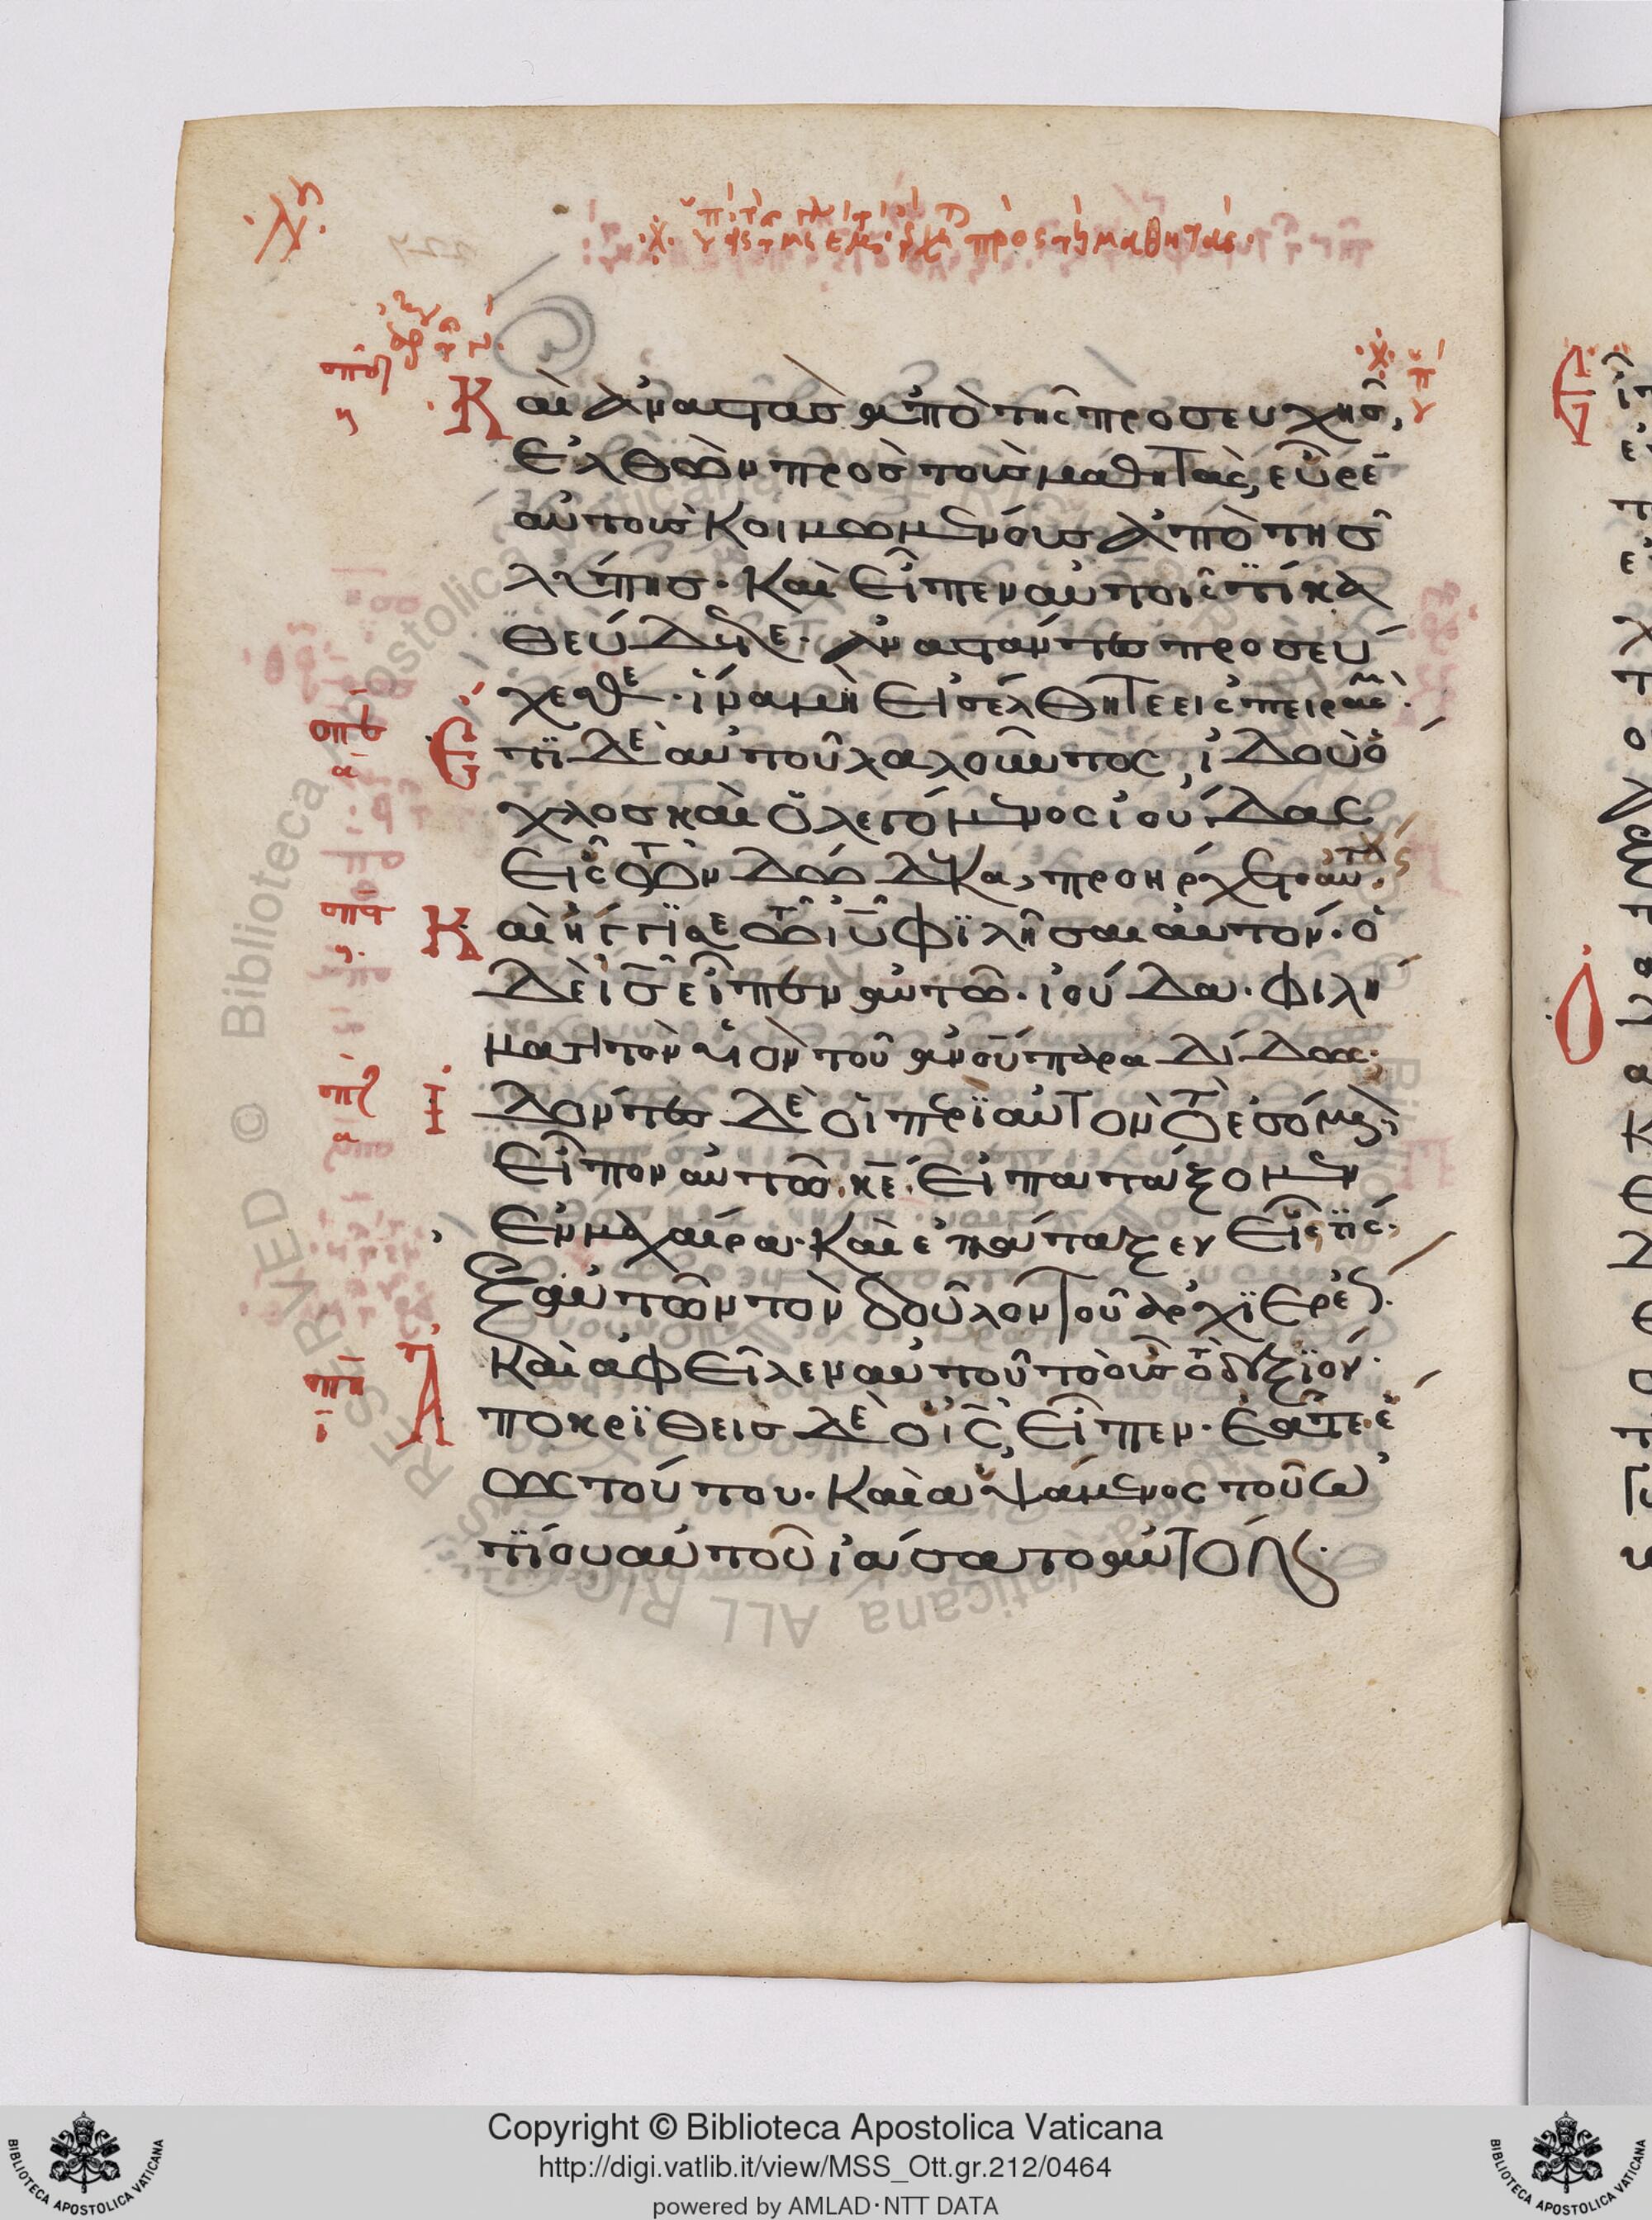 Καὶ ἀναστὰς ἀπὸ τῆς προσευχῆς,
ἐλθὼν πρὸς τοὺς μαθητὰς, εὗρε
αὐτοὺς κοιμωμένους ἀπὸ τῆς
λύπης. καὶ εἶπεν αὐτοῖς τί κα
θεύδετε. ἀναστάντες προσεύ
χεσθε. ἵνα μὴ εἰσέλθητε εἰς πειρασμὸ.
Ετι δὲ αὐτοῦ λαλοῦντος, ἰδοὺ ὄ
χλος καὶ ὁ λεγόμενος ἰούδας
εἷς τῶν δώδεκα, προήρχετο αὐτούς.
Καὶ ἤγγισε τῶ ιυ φιλῆσαι αὐτόν. ὁ
δὲ ις εἶπεν αὐτῶ. ἰούδα. φιλή
ματι τὸν υἱὸν τοῦ ανου παραδίδως;
Ιδόντες δὲ οἱ περὶ αὐτὸν τὸ ἐσόμενον,
εἶπον αὐτῶ. κε. εἰ πατάξομεν
ἐν μαχαίρα. καὶ ἐπάταξεν εἷς τίς.
ἐξ αὐτῶν τὸν δοῦλον τοῦ ἀρχιερέως.
καὶ ἀφεῖλεν αὐτοῦ τὸ οὖς τὸ δεξιόν.
Αποκριθεὶς δὲ ὁ ις, εἶπεν. ἐᾶτε ἕ
ως τούτου. καὶ ἁψάμενος τοῦ ὠ
τίου αὐτοῦ ἰάσατο αὐτόν.
Copyright © Biblioteca Apostolica Vaticana
http://digi.vatlib.it/view/MSS_Ott.gr.212/0464
powered by AMLAD·NTT DATA